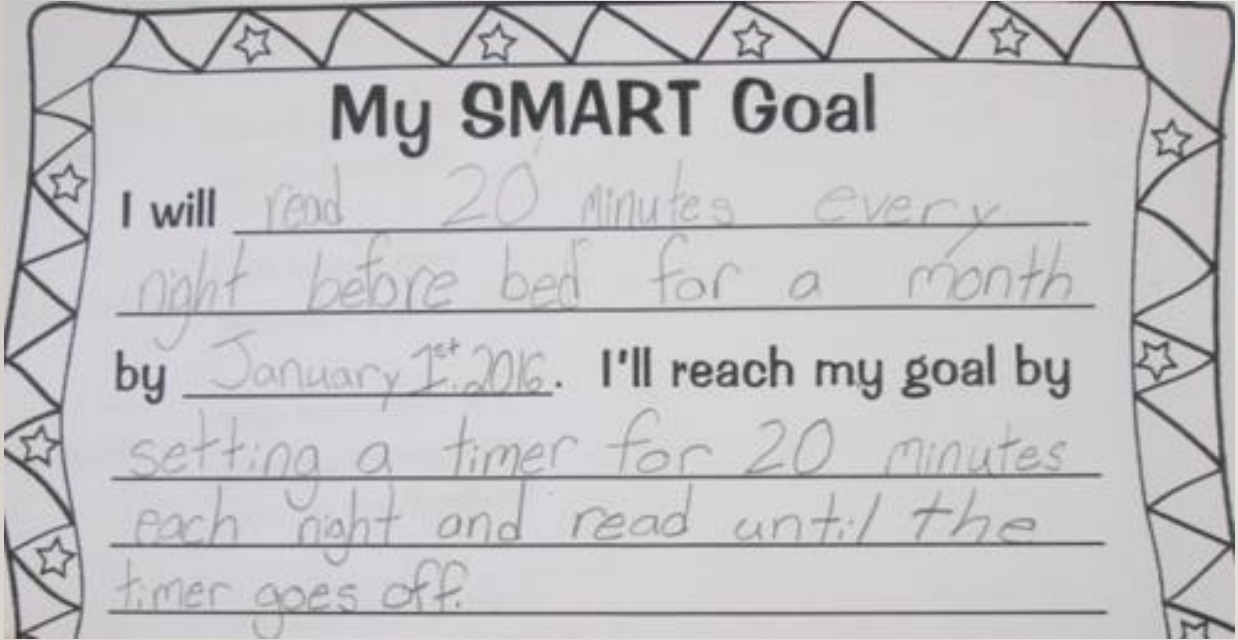 My SMART Goal
I will read 20 minutes every
night before bed for a month
by January 1st, 2016. I'll reach my goal by
setting a timer for 20 minutes
each night and read until the
timer goes off.